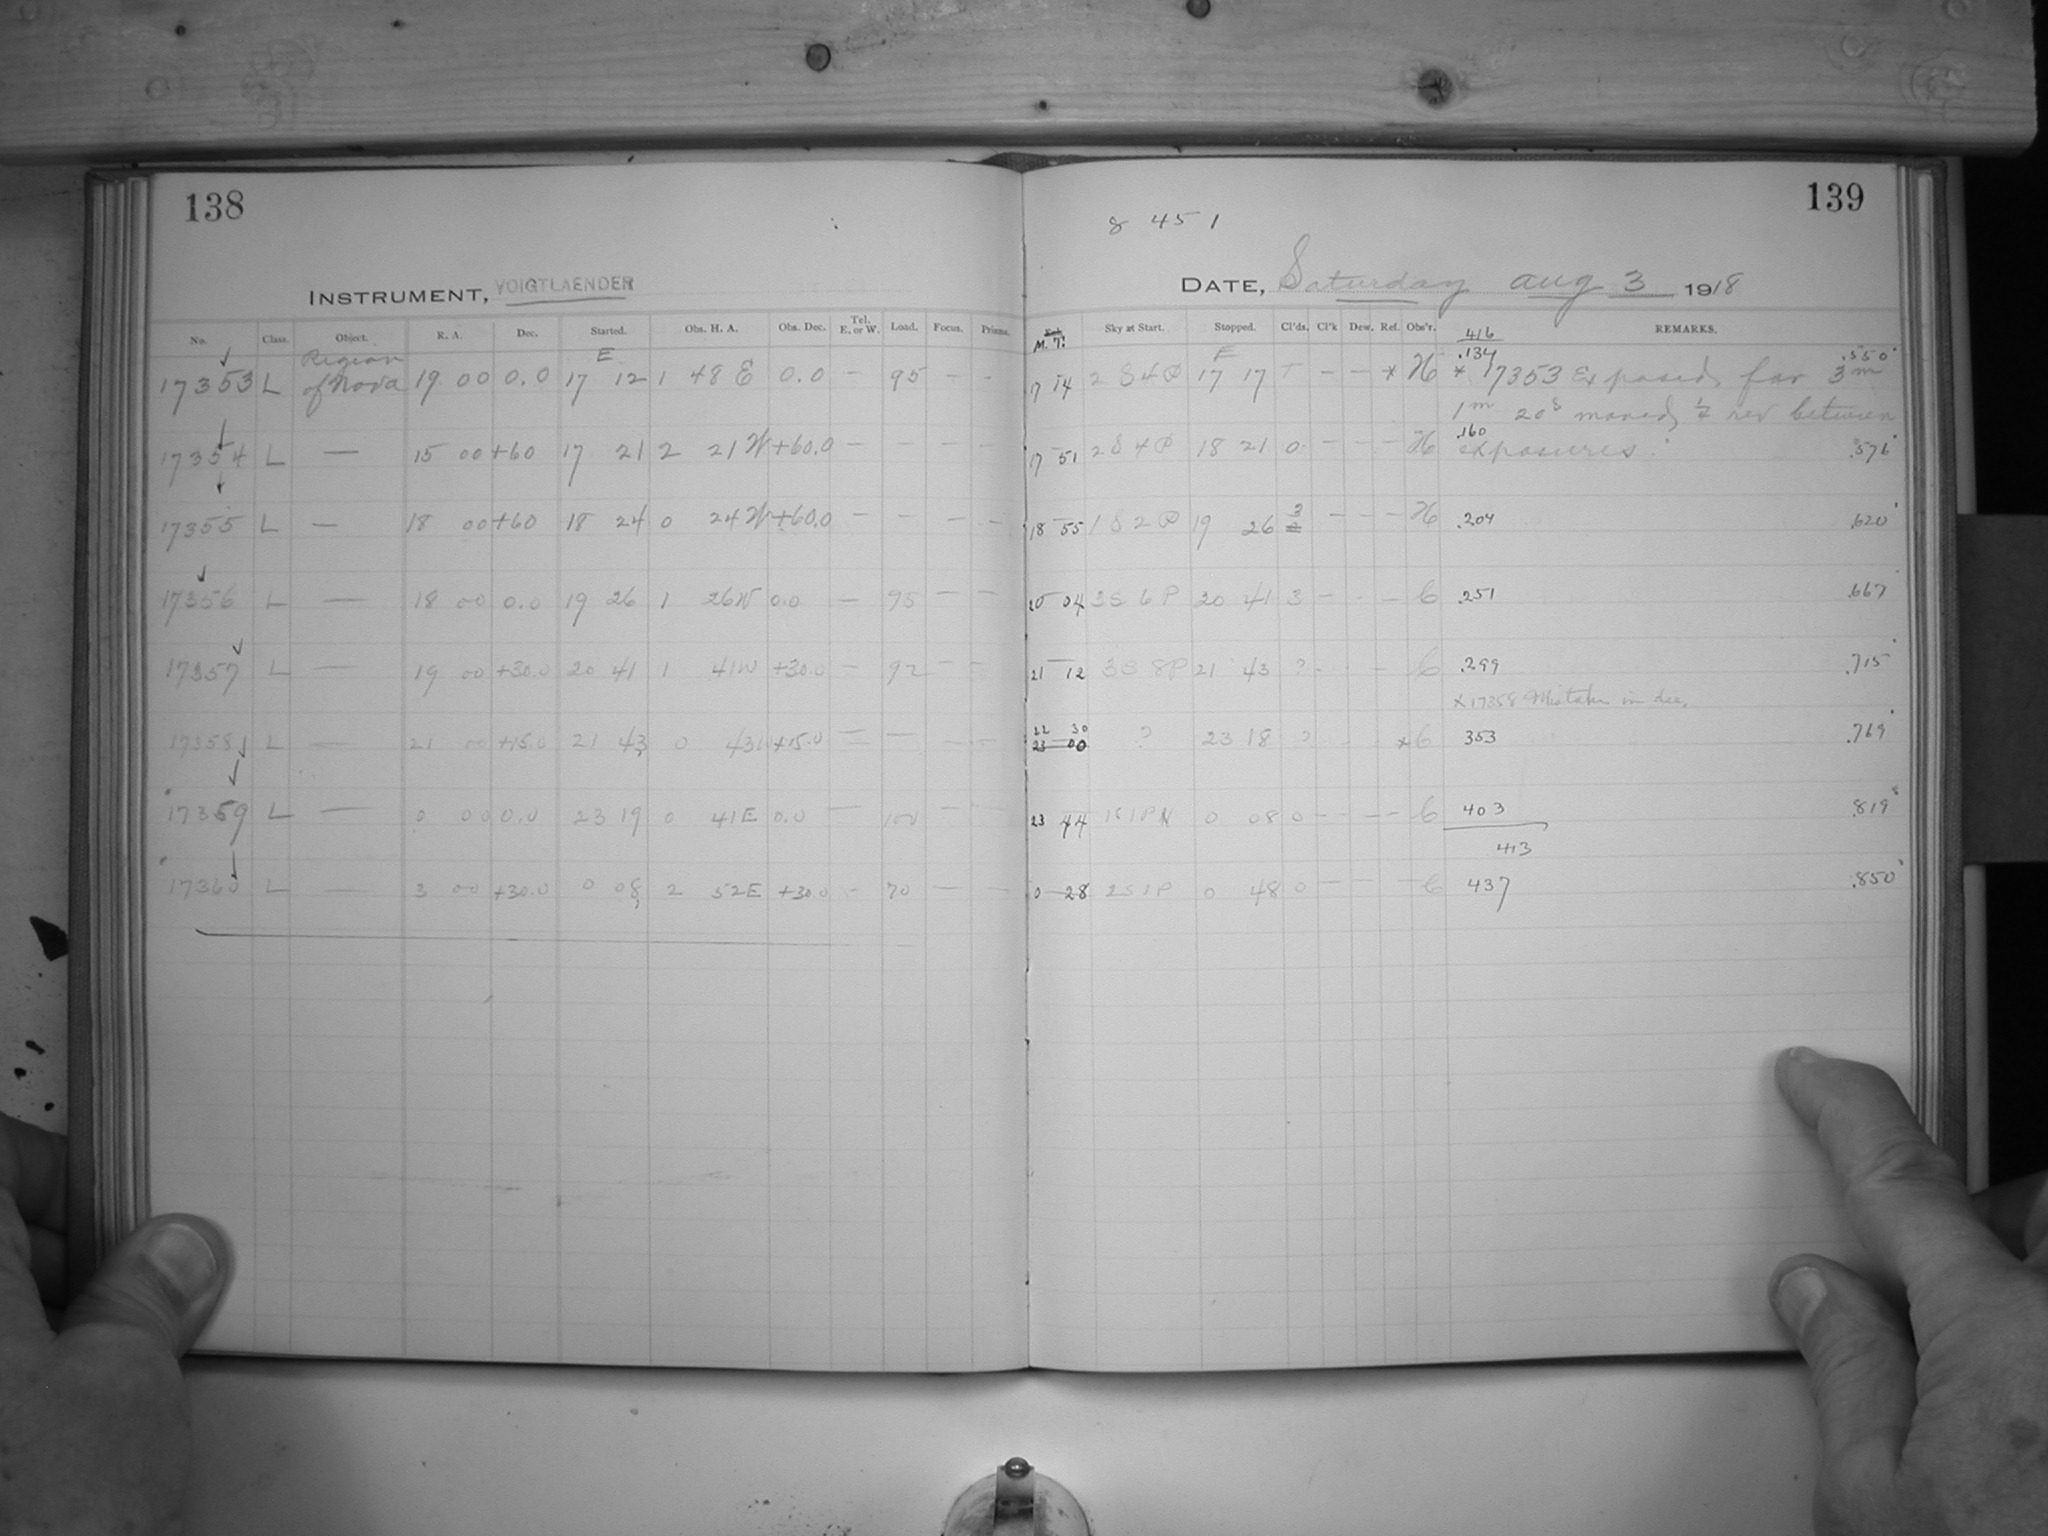 138
139
8 45 1
INSTRUMENT, VOIGTLAENDER
DATE, Saturday Aug 3 1918
No. Class. Object. R. A. Dec. Started. Obs. H. A. Obs. Dec. Tel. E. or W. Load. Focus. Prisms. M. T. Sky at Start. Stopped. Cl'ds. Cl'k Dew. Ref. Obs'r. REMARKS.
416
Region E .134 .550
17353 L of Nova 19 00 0.0 17 12 1 48 E 0.0 — 95 - - 17 14 2 S 4 P 17 17 - - * H * 17353 Exposed for 3m
1m 20s moved ½ rev between
17354 L — 15 00 +60 17 21 2 21 W +60.0 — — — — 17 51 2 S 4 P 18 21 0 - - - H .160 exposures. .576
17355 L — 18 00 +60 18 24 0 24 W +60.0 — — — — 18 55 1 S 2 P 19 26 3 - - - H .204 .620
17356 L — 18 00 0.0 19 26 1 26 W 0.0 — 95 — — 20 04 3 S 6 P 20 41 3 - - - C .251 .667
17357 L — 19 00 +30.0 20 41 1 41 W +30.0 — 92 - - 21 12 3 S 8 P 21 43 ? - - C .299 .715
x 17358 Mistake in dec.
22 30
17358 L — 21 00 +15.0 21 43 0 43 +15.0 — — 23 00 ? 23 18 ? * C 353 .769
17359 L — 0 00 0.0 23 19 0 41 E 0.0 — 100 23 44 0 08 0 - - - - C 403 .819
413
17360 L — 3 00 +30.0 0 08 2 52 E +30.0 - 70 — — 0 28 2 S 1 P 0 48 0 — — — C 437 .850